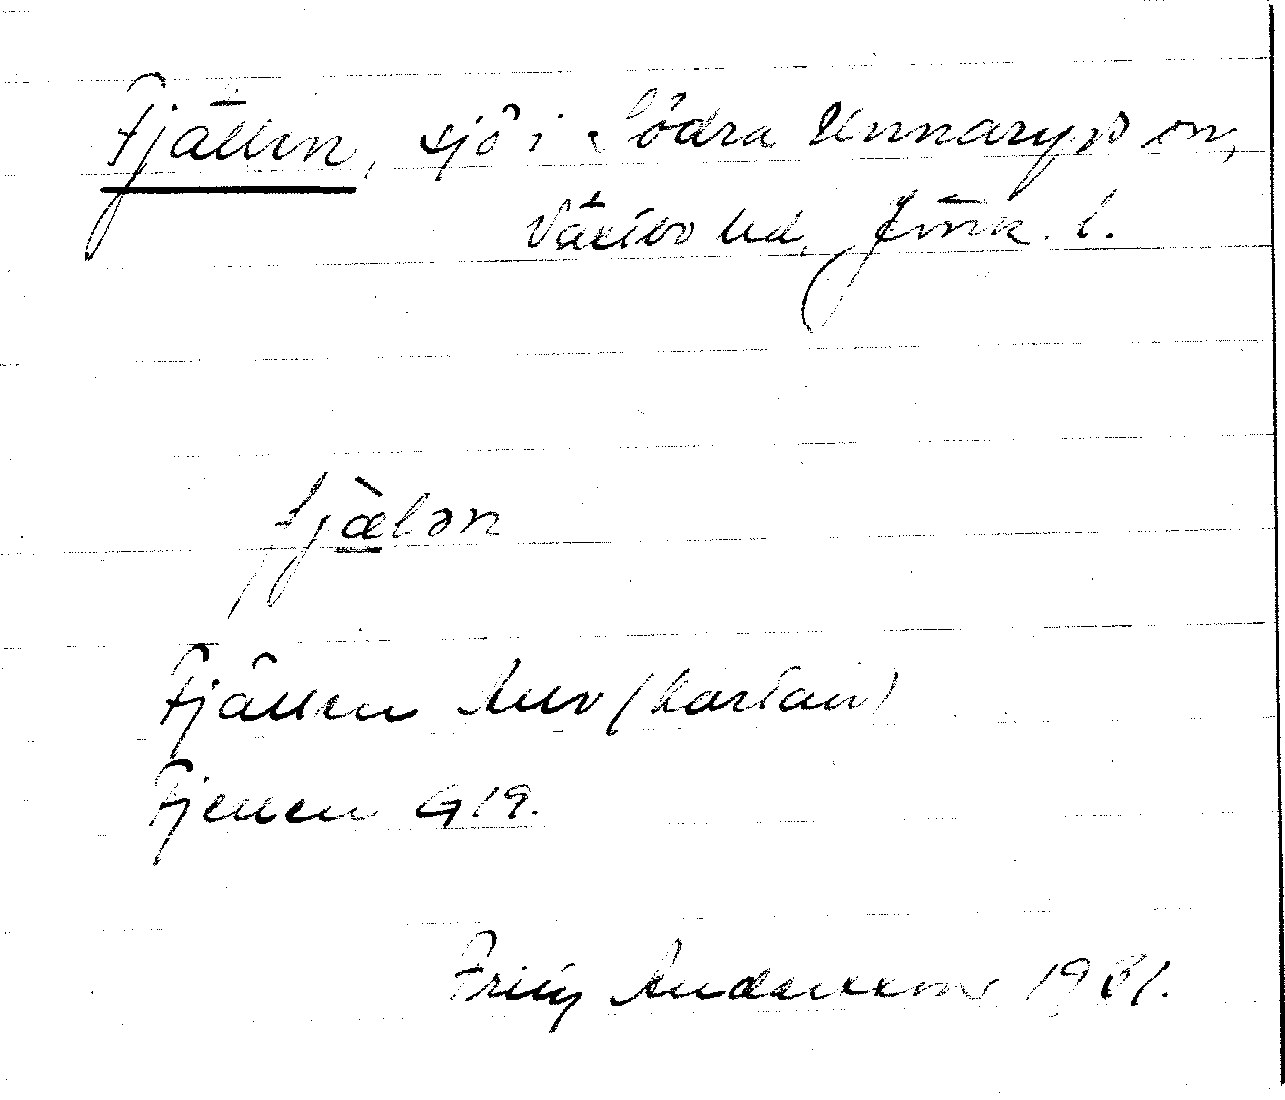 Fjällen, sjö i Södra Unnaryds sn,
Västbo hd, Jönk. l.
fjæ̀lən
Fjällen (kartan)
Fjellen G 19.
Fritz Andersson 1931.